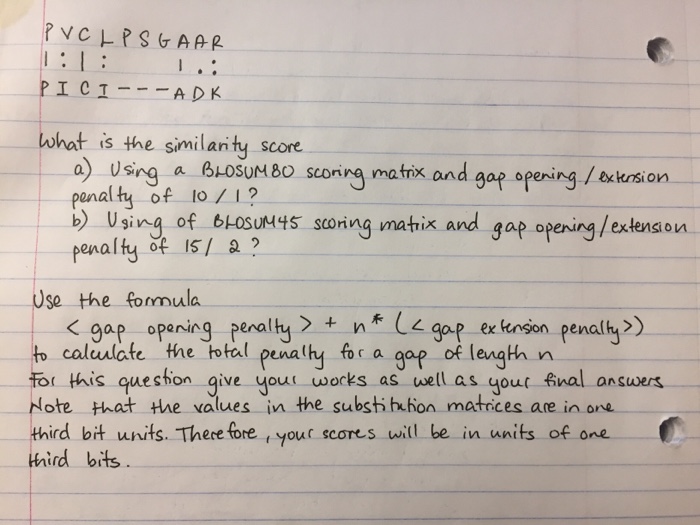 PVCLPSGAAR
|:|:   |.:
PICI---ADK
What is the similarity score
a) Using a BLOSUM80 scoring matrix and gap opening / extension
penalty of 10 / 1?
b) Using of BLOSUM45 scoring matrix and gap opening/extension
penalty of 15/ 2?
Use the formula
< gap opening penalty > + n* (< gap extension penalty>)
to calculate the total penalty for a gap of length n
For this question give your works as well as your final answers
Note that the values in the substitution matrices are in one
third bit units. Therefore, your scores will be in units of one
third bits.